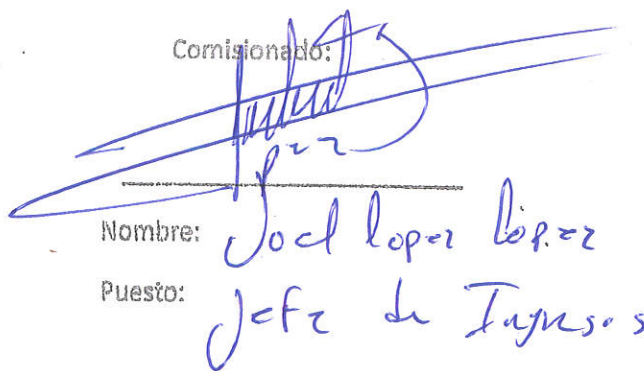 Comisionado:
Nombre: Joel lopez López
Puesto: Jefe de Ingresos